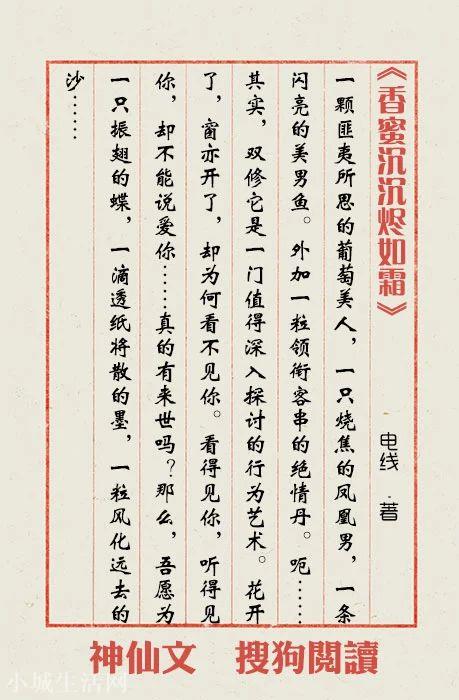 《香蜜沉沉烬如霜》
电线·著
一颗匪夷所思的葡萄美人，一只烧焦的凤凰男，一条
闪亮的美男鱼。外加一粒领衔客串的绝情丹。呃……
其实，双修它是一门值得深入探讨的行为艺术。花开
了，窗亦开了，却为何看不见你。看得见你，听得见
你，却不能说爱你……真的有来世吗？那么，吾愿为
一只振翅的蝶，一滴透纸将散的墨，一粒风化远去的
沙……
神仙文 搜狗閱讀
小城生活网